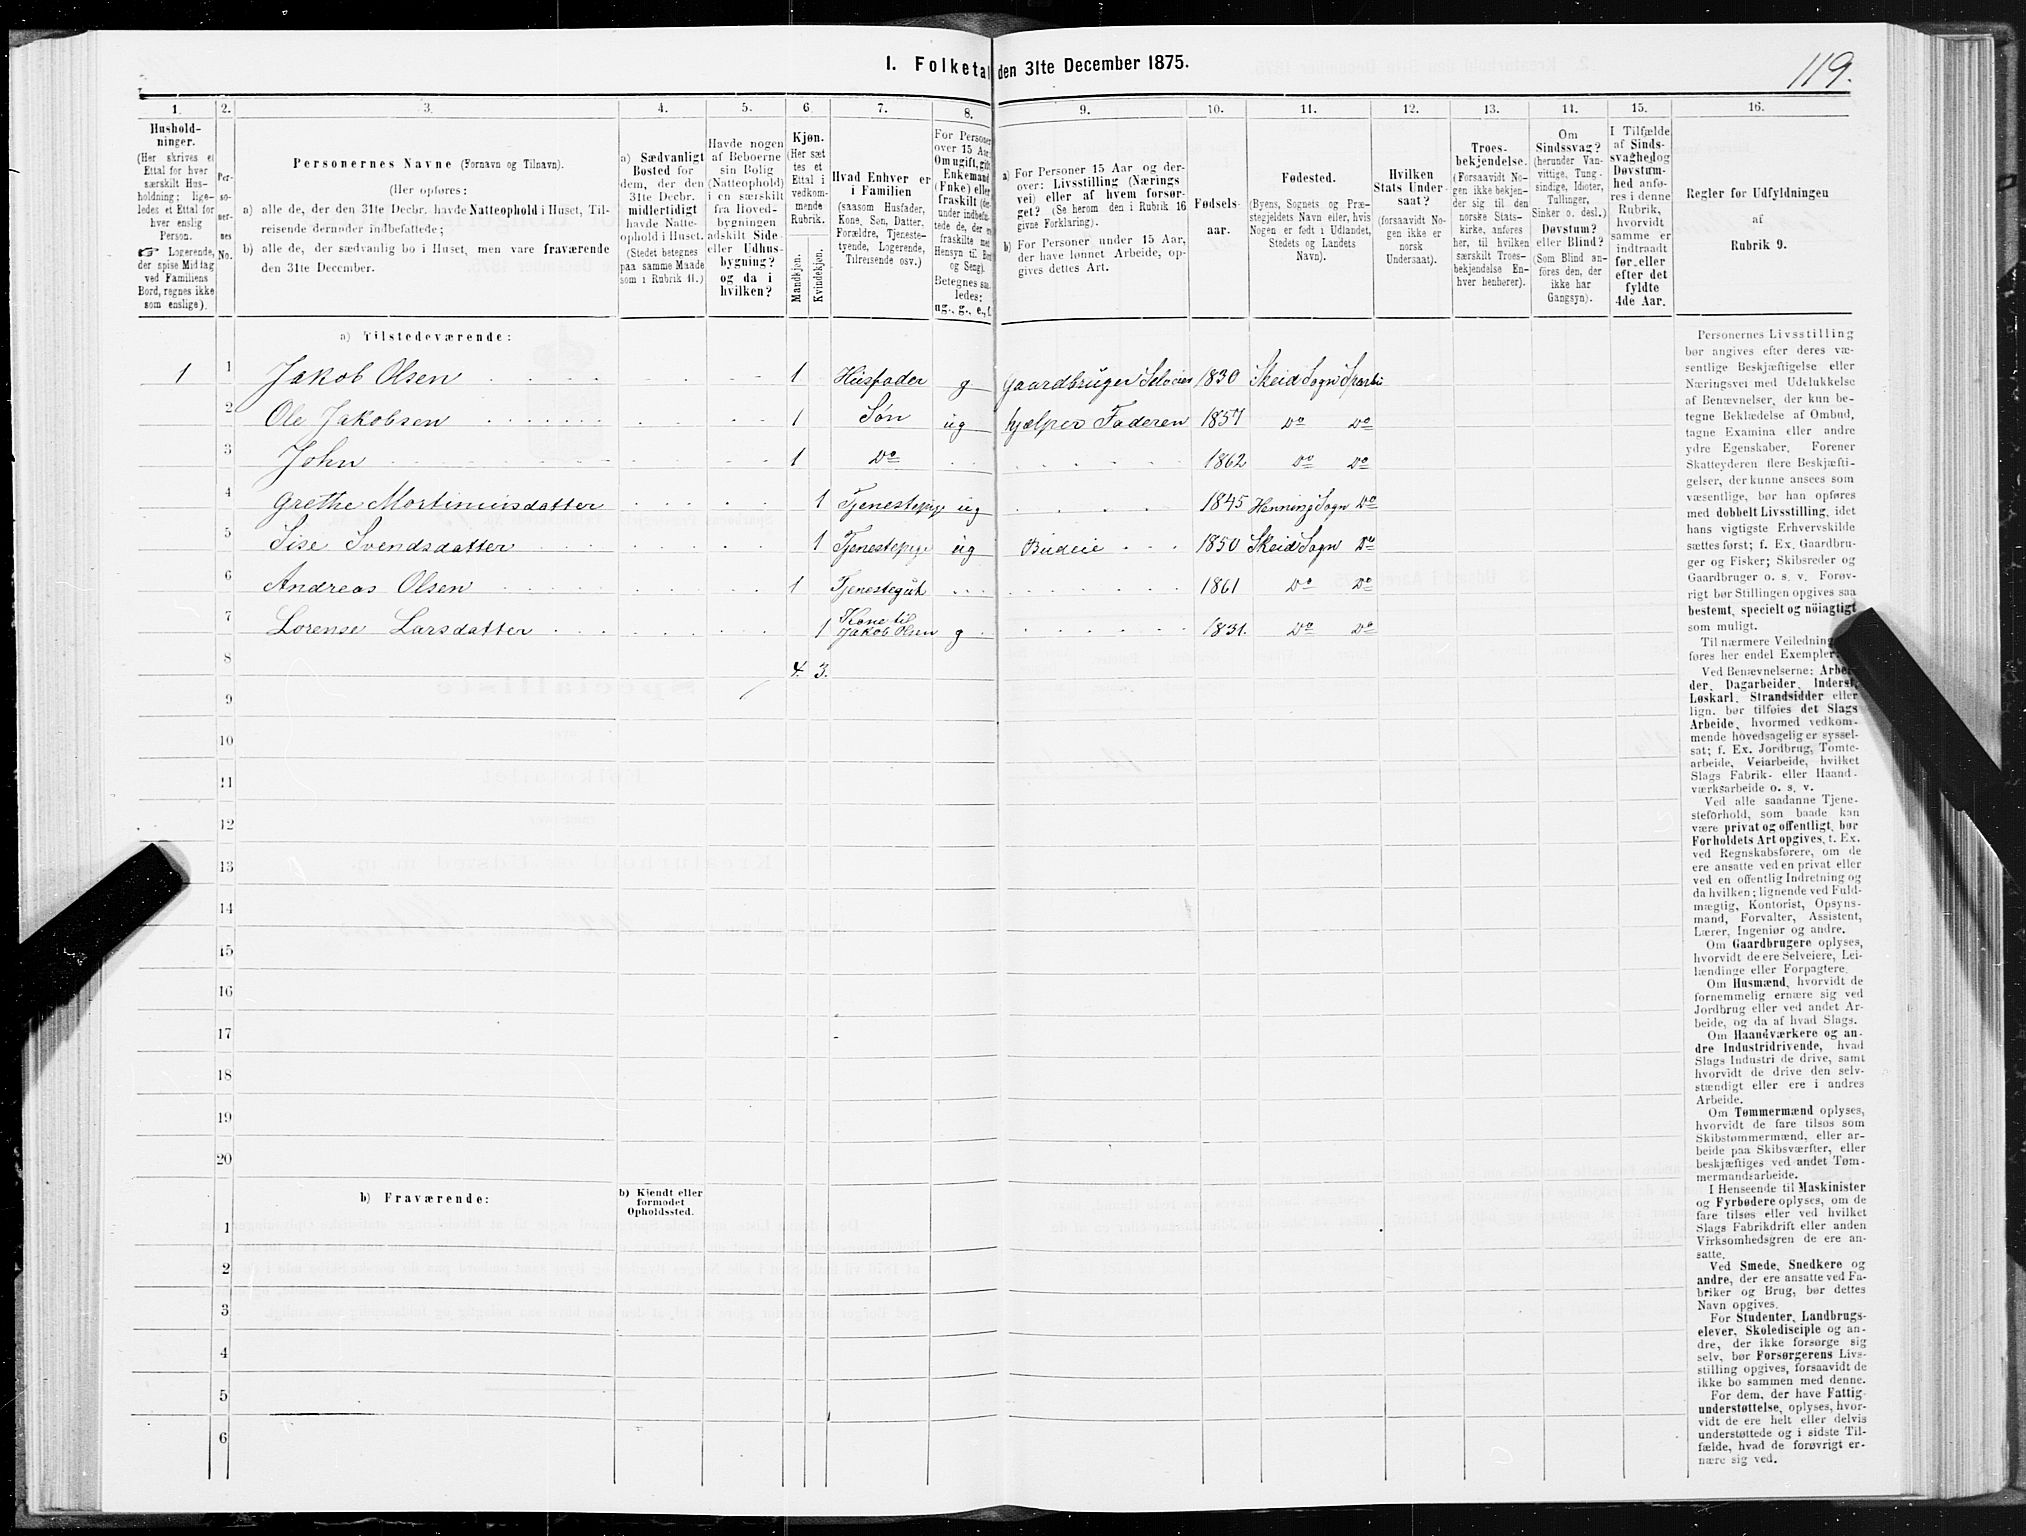 119.
I. Folketal den 31te December 1875.
1. 2. 3. 4. 5. 6. 7. 8. 9. 10. 11. 12. 13. 14. 15. 16.
Hushold-
ninger.
(Her skrives et
Ettal for hver
særskilt Hus-
holdning; lige-
ledes et Ettal for
hver enslig
Person.
☞ Logerende,
der spise Middag
ved Familiens
Bord, regnes ikke
som enslige).
Per-
so-
ner-
nes
No.
Personernes Navne (Fornavn og Tilnavn).
(Her opføres:
a) alle de, der den 31te Decbr. havde Natteophold i Huset, Til-
reisende derunder indbefattede;
b) alle de, der sædvanlig bo i Huset, men vare fraværende
den 31te December.
a) Sædvanligt
Bosted for
dem, der den
31te Decbr.
midlertidigt
havde Natte-
ophold i Huset.
(Stedet betegnes
paa samme Maade
som i Rubrik 11.)
Havde nogen
af Beboerne
sin Bolig
(Natteophold)
i en særskilt
fra Hoved-
bygningen
adskilt Side-
eller Udhus-
bygning?
og da i
hvilken?
Kjøn.
(Her sæt
tes et
Ettal i
vedkom-
mende
Rubrik.
Mandkjøn.
Kvindekjøn.
Hvad Enhver er
i Familien
(saasom Husfader,
Kone, Søn, Datter,
Forældre, Tjeneste-
tyende, Logerende,
Tilreisende osv.)
For Personer
over 15 Aar:
Om ugift, gift,
Enkemand
(Enke) eller
fraskilt
Betegnes saa-
ledes:
ug., g., e., f.
a) For Personer 15 Aar og der-
over: Livsstilling (Nærings
vei) eller af hvem forsør-
get? (Se herom den i Rubrik 16
givne Forklaring).
b) For Personer under 15 Aar,
der have lønnet Arbeide, op-
gives dettes Art.
Fødsels-
aar.
Fødested.
(Byens, Sognets og Præ-
stegjeldets Navn eller, hvis
Nogen er født i Udlandet,
Stedets og Landets
Navn).
Hvilken
Stats Under-
saat?
(forsaavidt No-
gen ikke er
norsk
Undersaat).
Troes-
bekjendelse.
(Forsaavidt No-
gen ikke bekjen-
der sig til den
norske Stats-
kirke, anføres
her, til hvilken
særskilt Troes-
bekjendelse En-
hver henhører).
Om
Sindssvag?
(herunder Van-
vittige, Tung-
sindige, Idioter,
Tullinger,
Sinker o. desl.)
Døvstum?
eller Blind?
(Som Blind an-
føres den, der
ikke har
Gangsyn).
I Tilfælde
af Sinds-
svaghed og
Døvstum-
hed anfø-
res i denne
Rubrik,
hvorvidt
samme er
indtraadt
før eller
efter det
fyldte
4de Aar.
Regler for Udfyldningen
af
Rubrik 9.
a) Tilstedeværende:
1 1 Jakob Olsen 1 Husfader g Gaardbruger Selveier 1830 Skeid Sogn Sparbu
2 Ole Jakobsen 1 Søn ug hjælper Faderen 1857 Do Do
3 John 1 Do 1862 Do Do
4 Grethe Mortinusdatter 1 Tjenestepige ug 1845 Henning Sogn Do
5 Sise Svendsdatter 1 Tjenestepige ug Budeie 1850 Skeid Sogn Do
6 Andreas Olsen 1 Tjenestegut 1861 Do Do
7 Lorense Larsdatter 1 Kone til Jakob Olsen g 1831. Do Do
8 4. 3.
9
10
11
12
13
14
15
16
17
18
19
20
b) Fraværende:
b) Kjendt eller
formodet
Opholdssted.
1
2
3
4
5
6
Personernes Livsstilling
bør angives efter deres væ-
sentlige Beskjæftigelse eller
Næringsvei med Udelukkelse
af Benævnelser, der kun be-
tegne Beklædelse af Ombud,
tagne Examina eller andre
ydre Egenskaber. Forener
Skatteyderen flere Beskjæfti-
gelser, der kunne ansees som
væsentlige, bør han opføres
med dobbelt Livsstilling, idet
hans vigtigste Erhvervskilde
sættes først; f. Ex. Gaardbru-
ger og Fisker; Skibsreder og
Gaardbruger o. s. v. Forøv-
rigt bør Stillingen opgives saa
bestemt, specielt og nöiagtigt
som muligt.
Til nærmere Veiledning
føres her endel Exempler:
Ved Benævnelserne: Arbei-
der, Dagarbeider, Inderst,
Løskarl, Strandsidder eller
lign. bør tilføies det Slags
Arbeide, hvormed vedkom-
mende hovedsagelig er syssel-
sat; f. Ex. Jordbrug, Tomte-
arbeide, Veiarbeide, hvilket
Slags Fabrik- eller Haand-
værksarbeide o. s. v.
Ved alle saadanne Tjene-
steforhold, som baade kan
være privat og offentligt, bør
Forholdets Art opgives, t. Ex.
ved Regnskabsførere, om de
ere ansatte ved en privat eller
ved en offentlig Indretning og
da hvilken; lignende ved Fuld-
mægtig, Kontorist, Opsyns-
mand, Forvalter, Assistent,
Lærer, Ingeniør og andre.
Om Gaardbrugere oplyses,
hvorvidt de ere Selveiere, Lei-
lændinge eller Forpagtere.
Om Husmænd, hvorvidt de
fornemmelig ernære sig ved
Jordbrug eller ved andet Ar-
beide, og da af hvad Slags.
Om Haandværkere og an-
dre Industridrivende, hvad
Slags Industri de drive, samt
hvorvidt de drive den selv-
stændigt eller ere i andres
Arbeide.
Om Tømmermænd oplyses,
hvorvidt de fare tilsøs som
Skibstømmermænd, eller ar-
beide paa Skibsværfter, eller
beskjæftiges ved andet Tøm-
mermandsarbeide.
I Henseende til Maskinister
og Fyrbødere oplyses, om de
fare tilsøs eller ved hvilket
Slags Fabrikdrift eller anden
Virksomhedsgren de ere an-
satte.
Ved Smede, Snedkere og
andre, der ere ansatte ved Fa-
briker og Brug, bør dettes
Navn opgives.
For Studenter, Landbrugs-
elever, Skoledisciple og an-
dre, der ikke forsørge sig
selv, bør Forsørgerens Livs-
stilling opgives, forsaavidt de
ikke bo sammen med denne.
For dem, der have Fattig-
understøttelse, oplyses, hvor-
vidt de ere helt eller delvis
understøttede og i sidste Til-
fælde, hvad de forøvrigt er-
nære sig ved.